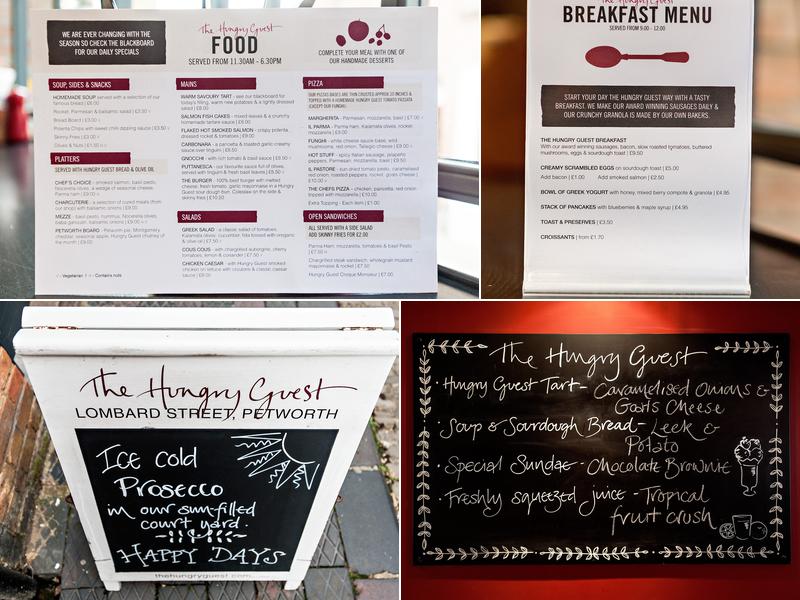 WE ARE EVER CHANGING WITH THE
SEASON SO CHECK THE BLACKBOARD
FOR OUR DAILY SPECIALS
The Hungry Guest
FOOD
SERVED FROM 11.30AM - 6.30PM
COMPLETE YOUR MEAL WITH ONE OF
OUR HANDMADE DESSERTS
SOUP, SIDES & SNACKS
HOMEMADE SOUP served with a selection of our
famous bread | £6.00
Rocket, Parmesan & balsamic salad | £3.50
Bread Board | £3.00
Polenta Chips with sweet chilli dipping sauce | £3.50
Skinny Fries | £3.00
Olives & Nuts |
PLATTERS
SERVED WITH HUNGRY GUEST BREAD & OLIVE OIL
CHEF'S CHOICE - smoked salmon, basil pesto,
Nocerella olives, a wedge of seasonal cheese,
Parma ham
CHARCUTERIE - a selection of cured meats (from
our shop) with balsamic onions | £9.00
MEZZE - basil pesto, hummus, Nocerella olives,
baba ganoush, balsamic onions | £9.00
PETWORTH BOARD - Prosciutto, pig, Montgomery
cheddar, seasonal apple, Hungry Guest chutney of
the month | £9.00
Vegetarian | Contains nuts
MAINS
WARM SAVOURY TART - see our blackboard for
today's filling, warm new potatoes & a lightly dressed
salad | £8.00
SALMON FISH CAKES - mixed leaves & a crunchy
homemade tartare sauce | £8.00
FLAKED HOT SMOKED SALMON - crispy polenta,
dressed rocket & tomatoes | £9.00
CARBONARA - a pancetta & roasted garlic creamy
sauce over linguini | £8.50
GNOCCHI - with rich tomato & basil sauce | £8.90
PUTTANESCA - our favourite sauce full of olives,
served with linguini & fresh basil leaves | £8.50
THE BURGER - 100% beef burger with melted
cheese, fresh tomato, garlic mayonnaise in a Hungry
Guest sour dough bun. Coleslaw on the side &
skinny fries | £10.50
SALADS
GREEK SALAD - a classic salad of tomatoes,
Kalamata olives, cucumber, feta tossed with oregano
& olive oil | £7.50
COUS COUS - with chargrilled aubergine, cherry
tomatoes, lemon & coriander | £7.50
CHICKEN CAESAR - with Hungry Guest smoked
chicken on lettuce with croutons & classic caesar
sauce | £9.00
PIZZA
OUR PIZZAS BASES ARE THIN CRUSTED APPROX 20 INCHES &
TOPPED WITH A HOMEMADE HUNGRY GUEST TOMATO PASSATA
(EXCEPT OUR FUNGHI).
MARGHERITA - Parmesan, mozzarella, basil | £7.00
IL PARMA - Parma ham, Kalamata olives, rocket,
mozzarella | £9.00
FUNGHI - white cheese sauce base, wild
mushrooms, red onion, Taleggio cheese | £9.00
HOT STUFF - spicy Italian sausage, jalapeño
peppers, Parmesan, mozzarella, basil | £9.50
IL PASTORE - sun dried tomato pesto, caramelised
red onion, roasted peppers, rocket, goats cheese |
£10.00
THE CHEFS PIZZA - chicken, pancetta, red onion
topped with mozzarella | £10.00
Extra Topping - Each item | £1.00
OPEN SANDWICHES
ALL SERVED WITH A SIDE SALAD
ADD SKINNY FRIES FOR £2.00
Parma Ham, mozzarella, tomatoes & basil Pesto
| £7.50
Chargrilled steak sandwich, wholegrain mustard
mayonnaise & rocket | £7.50
Hungry Guest Croque Monsieur | £7.00
The Hungry Guest
BREAKFAST MENU
SERVED FROM 9.00 - 12.00
START YOUR DAY THE HUNGRY GUEST WAY WITH A TASTY
BREAKFAST. WE MAKE OUR AWARD WINNING SAUSAGES DAILY &
OUR CRUNCHY GRANOLA IS MADE BY OUR OWN BAKERS.
THE HUNGRY GUEST BREAKFAST
With our award winning sausages, bacon, slow roasted tomatoes, buttered
mushrooms, eggs & sourdough toast | £9.50
CREAMY SCRAMBLED EGGS on sourdough toast | £5.00
Add bacon | £1.00 Add smoked salmon | £2.50
BOWL OF GREEK YOGURT with honey, mixed berry compote & granola | £4.95
STACK OF PANCAKES with blueberries & maple syrup | £4.95
TOAST & PRESERVES | £3.50
CROISSANTS | from £1.70
The Hungry Guest
LOMBARD STREET, PETWORTH
Ice cold
Prosecco
in our sun-filled
court yard.
HAPPY DAYS
thehungryguest.com
The Hungry Guest
· Hungry Guest Tart - Caramelised Onions &
Goats Cheese
· Soup & Sourdough Bread - Leek &
Potato
· Special Sundae - Chocolate Brownie
· Freshly squeezed juice - Tropical
fruit crush